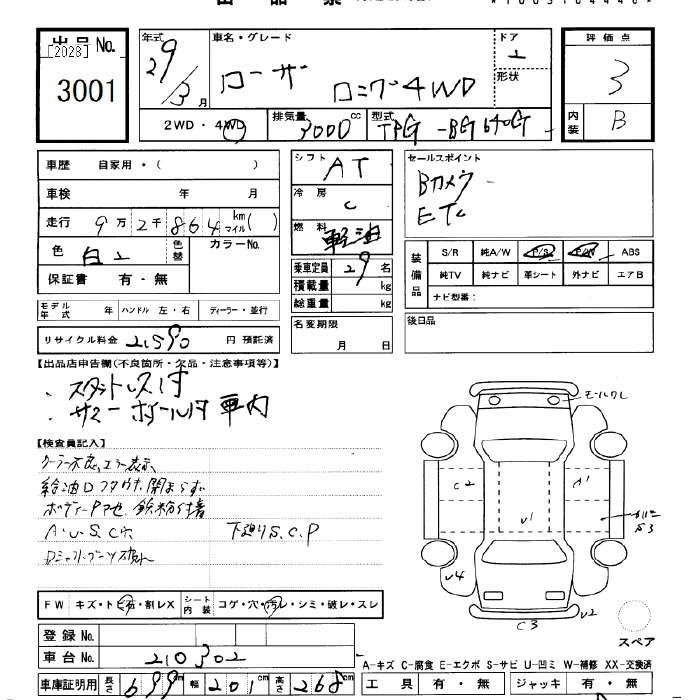 出品No.
[2028]
3001
年式
29/3 月
車名・グレード
ローザ
ロング4WD
ドア
形状
評価点
3
内装
B
2WD・4WD
排気量
3000 cc
型式
TPG-BG640G
車歴 自家用・( )
車検 年 月
走行 9万2千864 km マイル( )
色 白
色替
カラーNo.
保証書 有・無
シフト AT
冷房 C
燃料 軽油
乗車定員 29名
積載量 kg
総重量 kg
名変期限
月 日
セールスポイント
Bカメラ
ETC
装備品
S/R 純A/W P/S P/W ABS
純TV 純ナビ 革シート 外ナビ エアB
ナビ型番:
後日品
モデル年式 年 ハンドル 左・右 ディーラー・並行
リサイクル料金 21590 円 預託済
【出品店申告欄(不良箇所・欠品・注意事項等)】
・スタットレス付
・サマーホイール付 車内
【検査員記入】
クーラー不良、エラー表示
A・U・S・C
下廻りS、C、P
モールワレ
C2
A1
U1
S3
U4
U2
C3
スペア
FW キズ・トビ石・割レX
シート内装 コゲ・穴・汚レ・シミ・破レ・スレ
登録No.
車台No. 210302
車庫証明用 長さ 699 cm 幅 201 cm 高さ 268 cm
A-キズ C-腐食 E-エクボ S-サビ U-凹ミ W-補修 XX-交換済
工具 有・無 ジャッキ 有・無